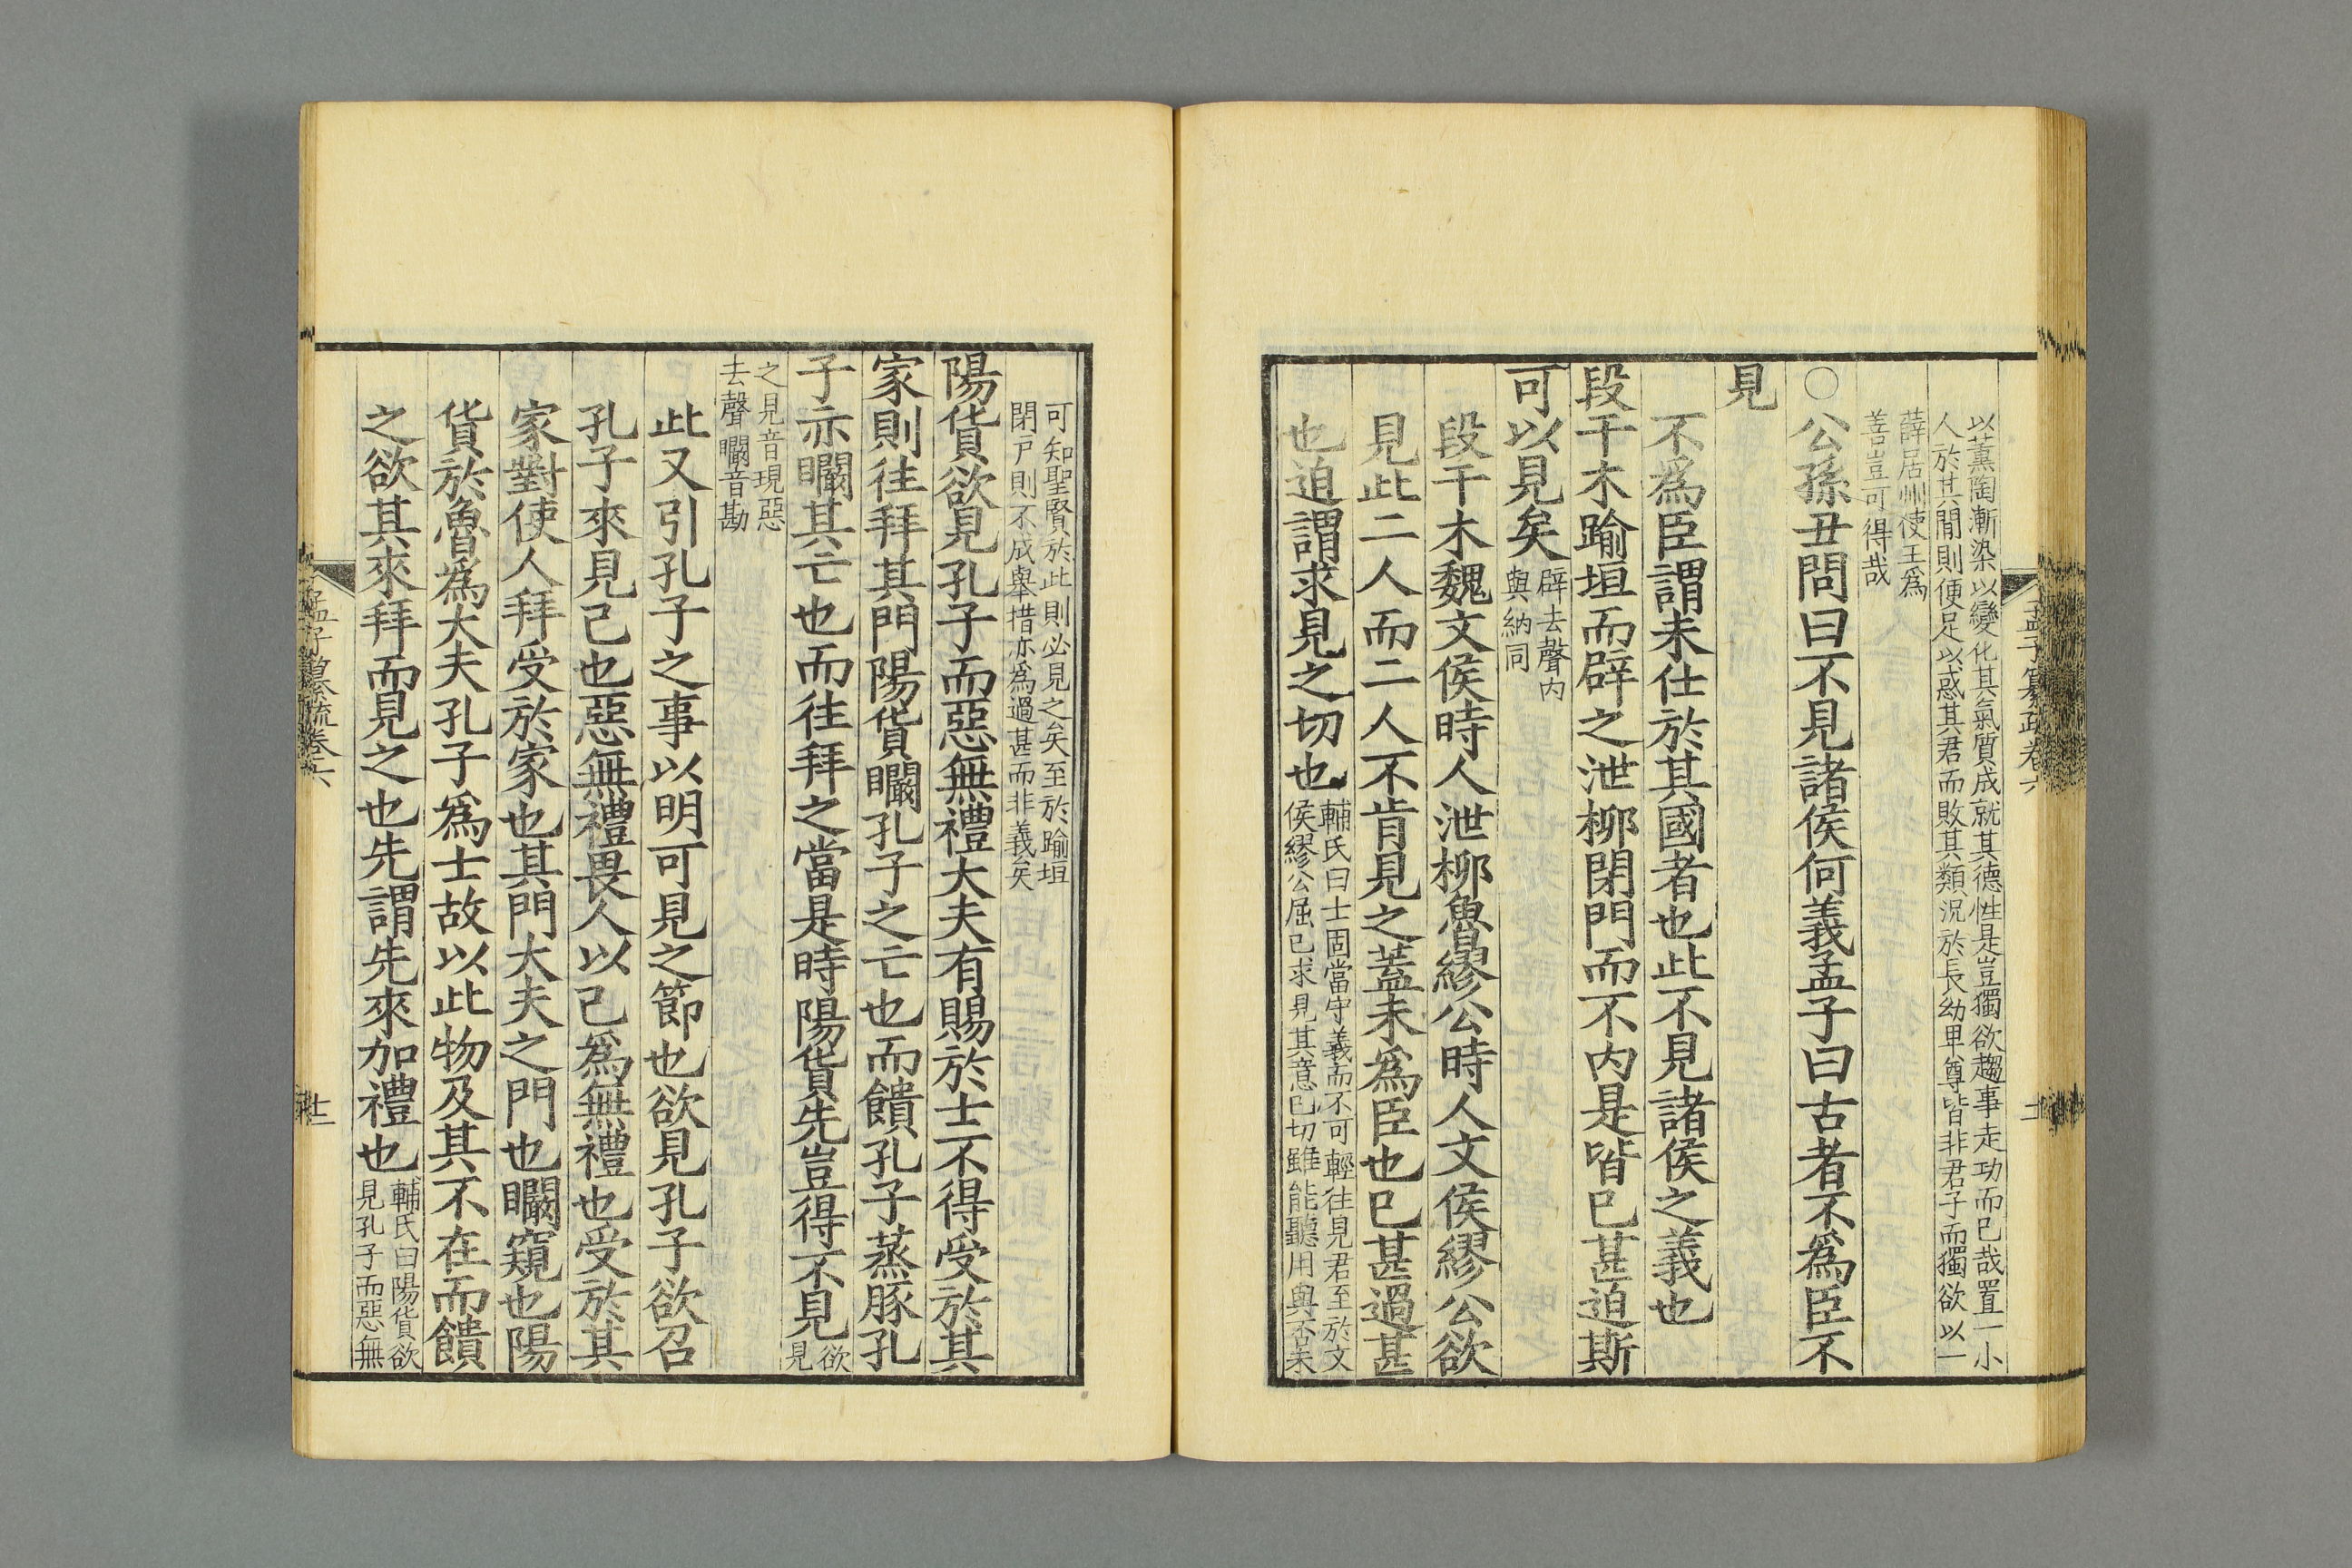 孟子纂疏卷六
以薰陶漸染以變化其氣質成就其德性是豈獨欲趨事走功而已哉置一小
人於其間則便足以惑其君而敗其類況於長幼卑尊皆非君子而獨欲以一
薛居州使王爲
善豈可得哉
〇公孫丑問曰不見諸侯何義孟子曰古者不爲臣不
見
不爲臣謂未仕於其國者也此不見諸侯之義也
段干木踰垣而辟之泄柳閉門而不內是皆已甚迫斯
可以見矣
辟去聲內
與納同
段干木魏文侯時人泄柳魯繆公時人文侯繆公欲
見此二人而二人不肯見之蓋未爲臣也已甚過甚
也迫謂求見之切也
輔氏曰士固當守義而不可輕往見君至於文
侯繆公屈已求見其意已切雖能聽用與否未
可知聖賢於此則必見之矣至於踰垣
閉戶則不成舉措亦爲過甚而非義矣
陽貨欲見孔子而惡無禮大夫有賜於士不得受於其
家則往拜其門陽貨矙孔子之亡也而饋孔子蒸豚孔
子亦矙其亡也而往拜之當是時陽貨先豈得不見
欲
見
之見音現惡
去聲矙音勘
此又引孔子之事以明可見之節也欲見孔子欲召
孔子來見己也惡無禮畏人以己爲無禮也受於其
家對使人拜受於家也其門大夫之門也矙窺也陽
貨於魯爲大夫孔子爲士故以此物及其不在而饋
之欲其來拜而見之也先謂先來加禮也
輔氏曰陽貨欲
見孔子而惡無
孟子纂疏卷六